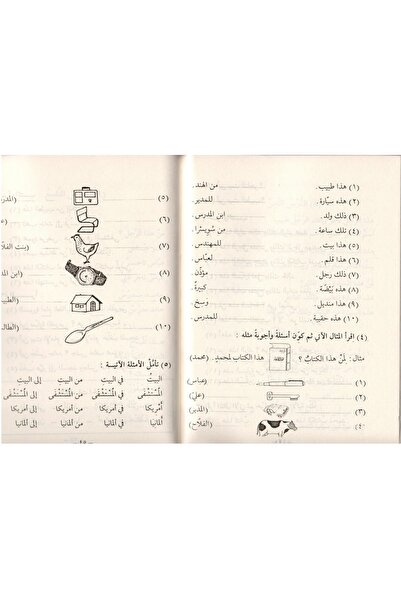 (١) هذا طبيب . من الهند .
(٢) هذه سيّارة . للمدير .
(٣) ذلك ولد . ابن المدرس .
(٤) تلك ساعة . من سُويسْرا .
(٥) هذا بيت . للمهندس .
(٦) هذا قلم . لعبّاس .
(٧) ذلك رجل . مؤذّن .
(٨) هذه بَيْضَة . كبيرةٌ .
(٩) هذا منديل . وسِخ .
(١٠) هذه حقيبة . للمدرس .
(٤) اقرأ المثال الآتي ثم كوّن أسئلةً وأجوبةً مثله :
مثال : لِمَنْ هذا الكتابُ ؟ هذا الكتاب لمحمدٍ . (محمد)
(١) (عباس)
(٢) (عليّ)
(٣) (المدير)
(٤) (الفلّاح)
(٥)
(٦)
(٧) (بنت
(٨) (ابن
(٩)
(١٠)
(٥) تأمَّلْ الأمثلة الآتيـة :
البيتُ في البيتِ من البيتِ إلى البيتِ
المُسْتَشْفَى في المُسْتَشْفَى من المُسْتَشْفَى إلى المُسْتَشْفَى
أمْرِيكا في أمريكا من أمريكا إلى أمريكا
ألمانيا في ألمانيا من ألمانيا إلى ألمانيا